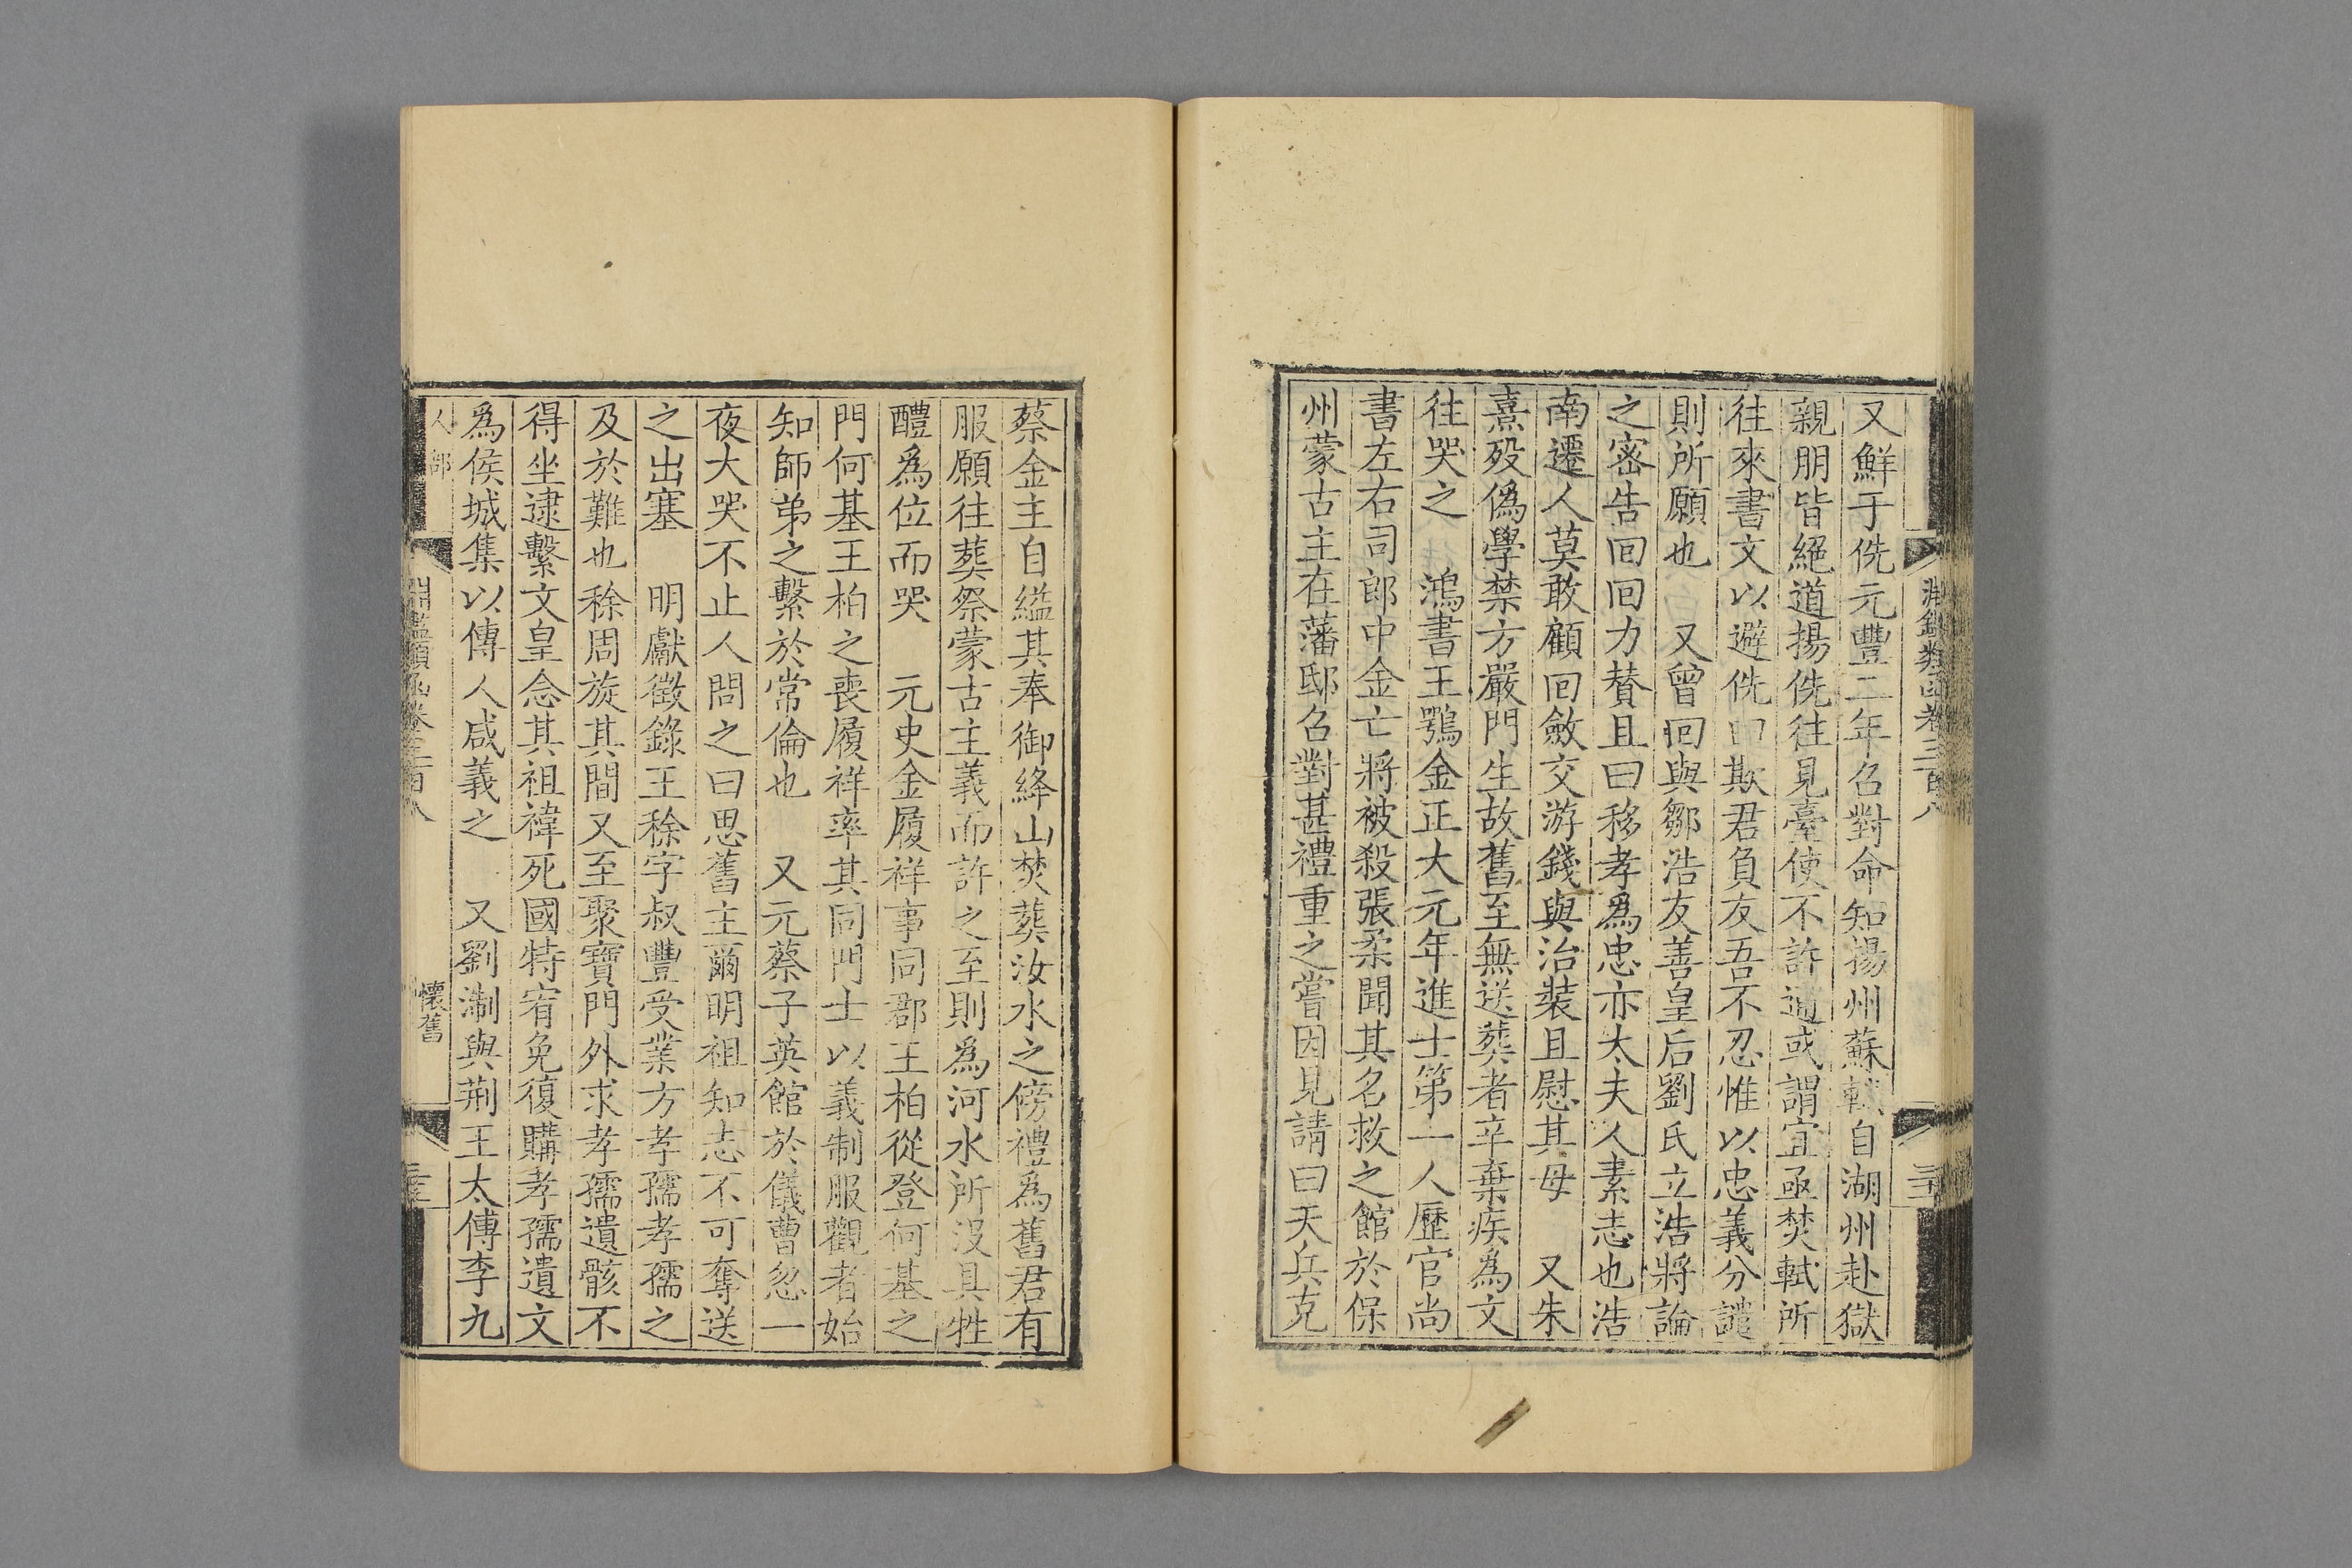 又鮮于侁元豐二年召對命知揚州蘇軾自湖州赴獄
親朋皆絕道揚侁往見臺使不許通或謂宜亟焚軾所
往來書文以避侁曰欺君負友吾不忍惟以忠義分譴
則所願也　又曾回與鄒浩友善皇后劉氏立浩將論
之密告回回力賛且曰移孝爲忠亦太夫人素志也浩
南遷人莫敢顧回斂交游錢與治裝且慰其母　又朱
熹歿僞學禁方嚴門生故舊至無送葬者辛棄疾爲文
往哭之　鴻書王鶚金正大元年進士第一人歷官尚
書左右司郎中金亡將被殺張柔聞其名救之館於保
州蒙古主在藩邸召對甚禮重之嘗因見請曰天兵克
蔡金主自縊其奉御絳山焚葬汝水之傍禮爲舊君有
服願往葬祭蒙古主義而許之至則爲河水所沒具牲
醴爲位而哭　元史金履祥事同郡王柏從登何基之
門何基王柏之喪履祥率其同門士以義制服觀者始
知師弟之繫於常倫也　又元蔡子英館於儀曹忽一
夜大哭不止人問之曰思舊主爾明祖知志不可奪送
之出塞　明獻徵錄王稌字叔豐受業方孝孺孝孺之
及於難也稌周旋其間又至聚寶門外求孝孺遺骸不
得坐逮繫文皇念其祖褘死國特宥免復購孝孺遺文
爲侯城集以傳人咸義之　又劉淛與荊王太傅李九
人部
淵鑑類函卷三百八
懷舊